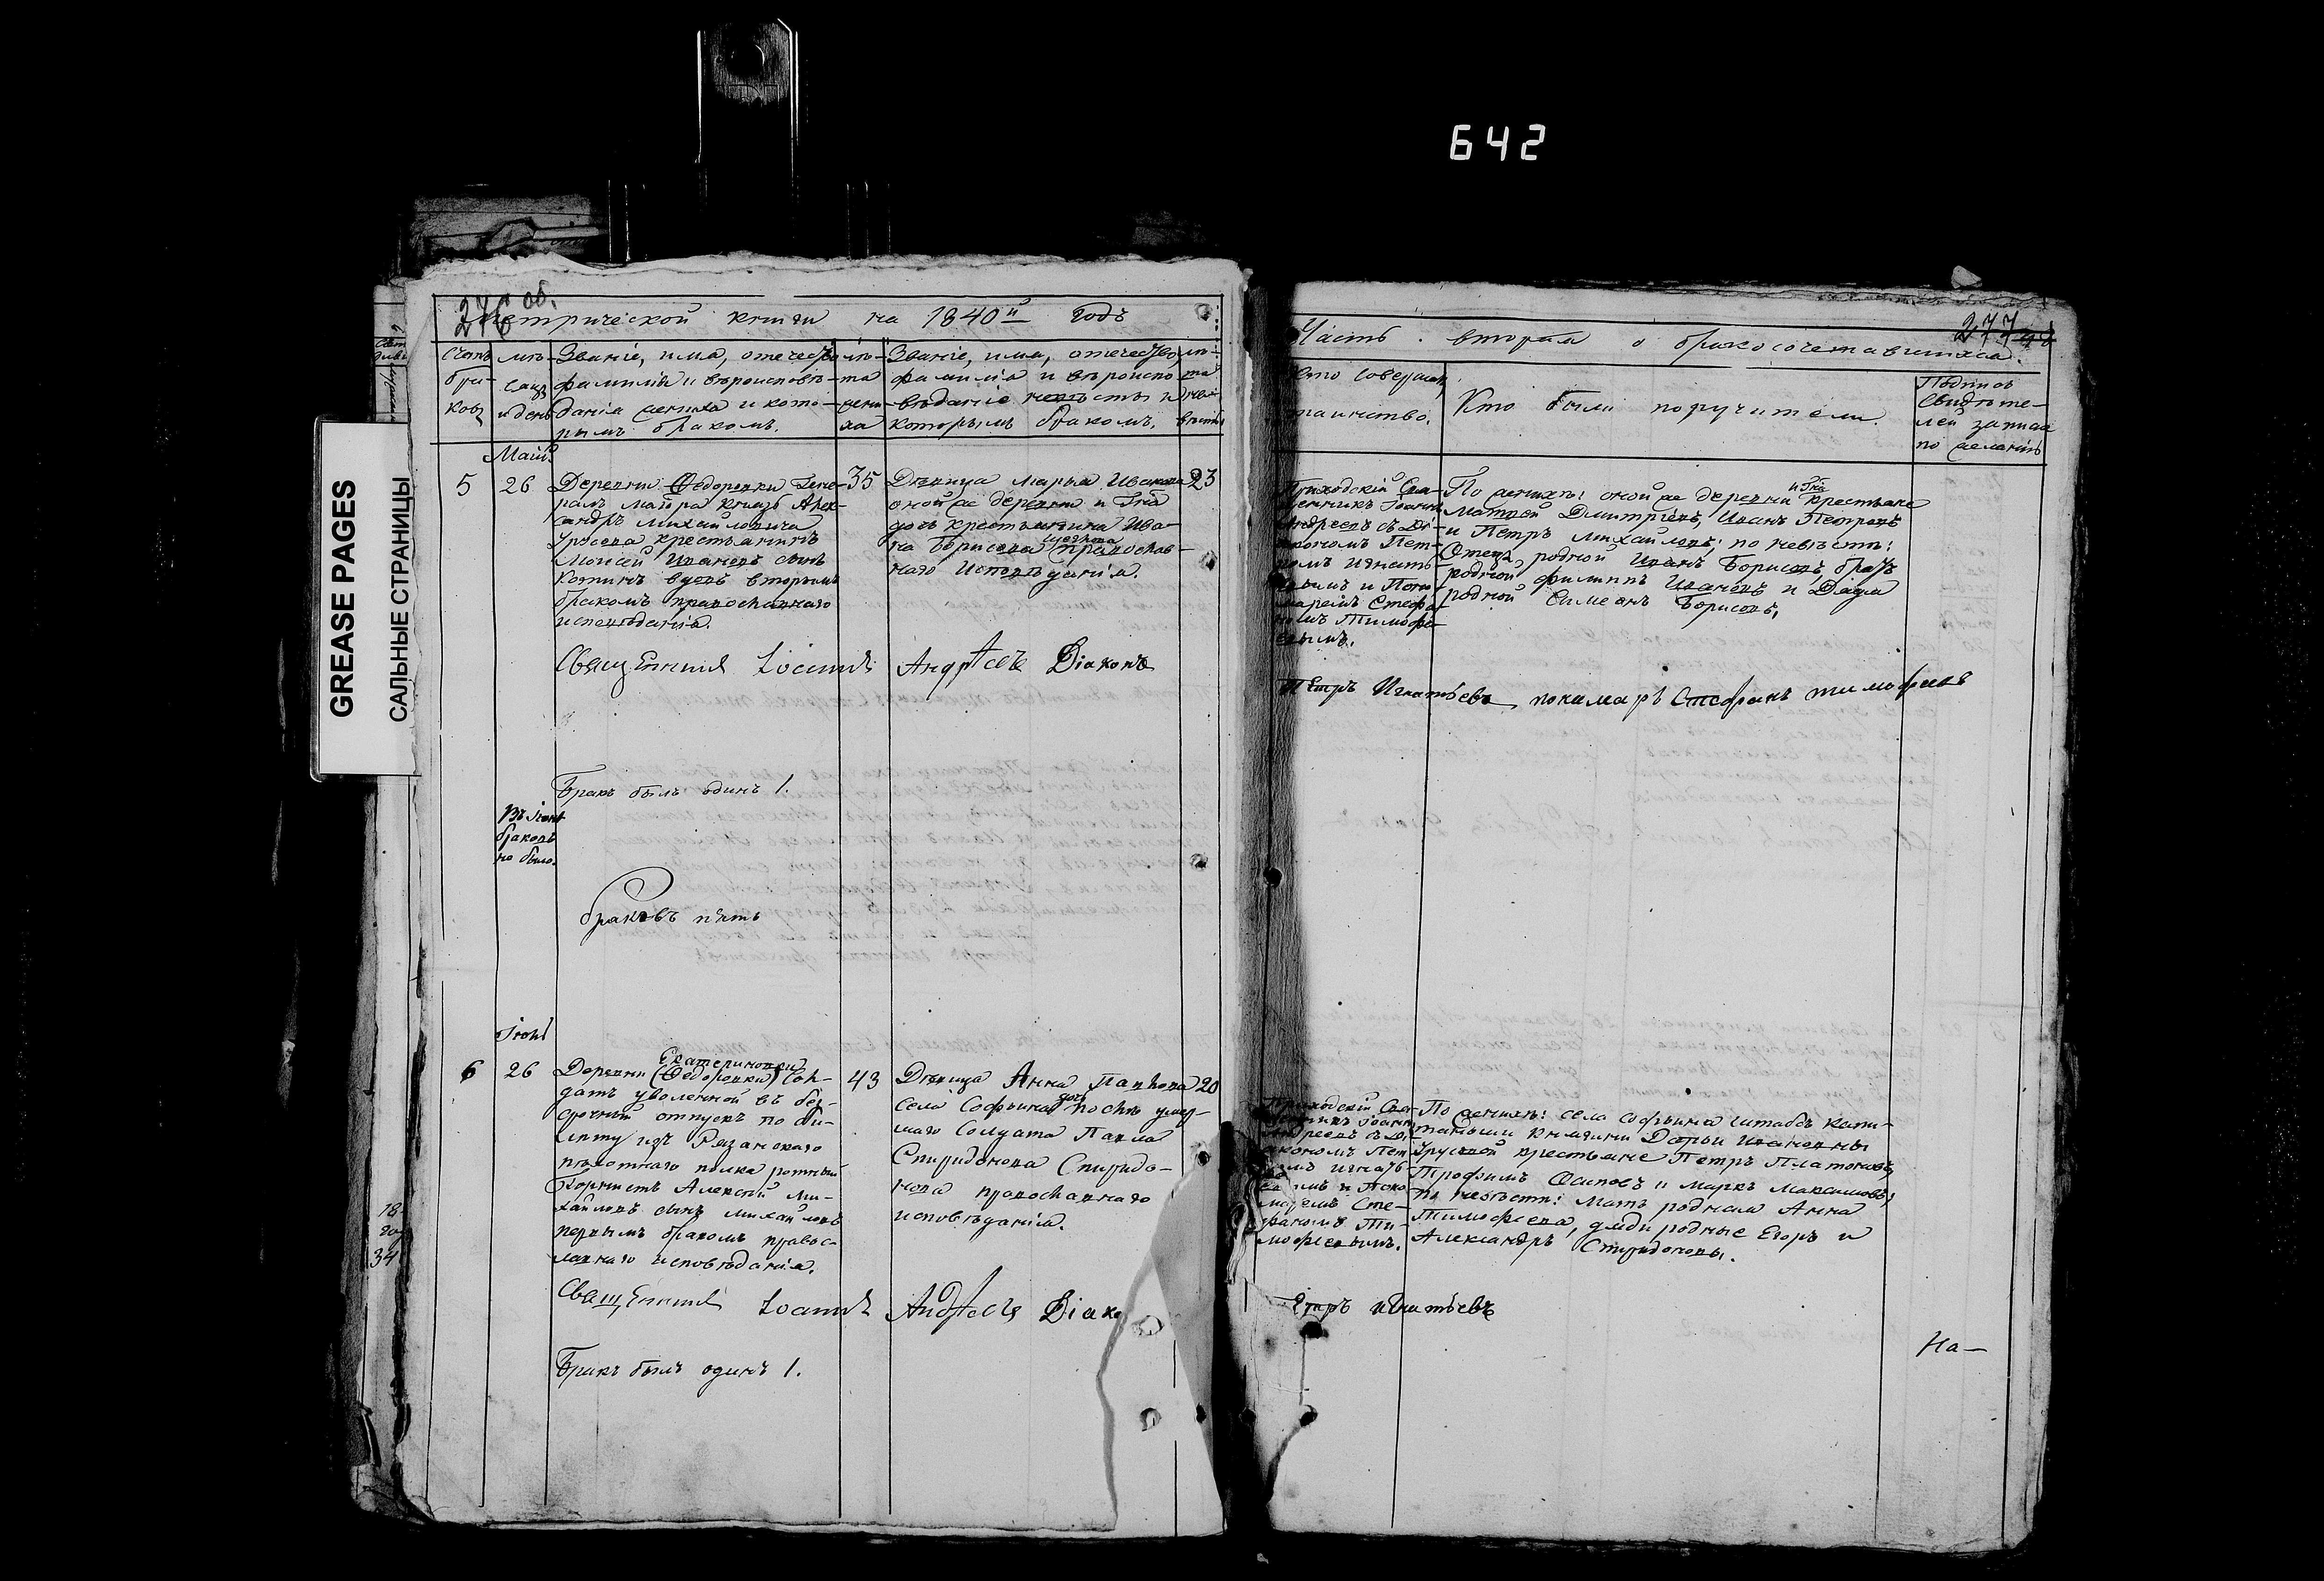 642
GREASE PAGES
САЛЬНЫЕ СТРАНИЦЫ
276 об.
метрической книги на 1840й годъ
Счетъ браковъ
мѣсяцъ и день
Званіе, имя, отечество, фамилія и вѣроисповѣданіе жениха и которымъ бракомъ.
лѣта жениха
Званіе, имя, отечество, фамилія и вѣроисповѣданіе невѣсты и которымъ бракомъ.
лѣта невѣсты
Маій
5
26
Деревни Ѳедоровки Гене-
ралъ маіора князь Алек-
сандръ Михайловича
Урусова крестьянинъ
Моисей Ивановъ сынъ
вдовъ вторымъ
бракомъ православнаго
исповѣданія.
35
Дѣвица Марья Иванова
оной же деревни и Гна
дочь крестьянина Ива-
на Борисова православ-
наго исповѣданія.
23
Священникъ Іоаннъ Андреевъ Діаконъ
Бракъ былъ одинъ 1.
браковъ
не было.
браковъ пять
6
26
Екатериновки
Деревни (Ѳедоровки) Сол-
датъ уволенной въ без-
срочный отпускъ по би-
лету изъ Рязанскаго
пѣхотнаго полка ротный
Горнистъ Алексѣй Ми-
хайловъ сынъ Михайловъ
первымъ бракомъ правос-
лавнаго исповѣданія.
43
Дѣвица Анна Павлова
дочь
села Софьина послѣ умер-
шаго Солдата Павла
Спиридонова Спиридо-
нова православнаго
исповѣданія.
20
Священникъ Іоаннъ Андреевъ Діако
Бракъ былъ одинъ 1.
18
34
277
Часть вторая о бракосочетавшихся.
Кто совершалъ таинство.
Кто были поручители.
Подписъ свидѣтелей записи по желанію
Приходскій Свя-
щенникъ Іоаннъ
Андреевъ съ Ді-
акономъ Пет-
ромъ Игнать-
евымъ и Поно-
маремъ Стефа-
номъ Тимофе-
евымъ.
и Гна
По женихѣ: оной же деревни крестьяне
Матвей Дмитріевъ, Иванъ Петровъ
и Петръ Михайловъ; по невѣстѣ:
Отецъ родной Иванъ Борисовъ, братъ
родной Филиппъ Ивановъ и Дядя
родной Симеонъ Борисовъ.
Петръ Игнатьевъ понамарь Стефанъ Тимофеевъ
Приходскій Свя-
щенникъ Іоаннъ
Андреевъ съ Ді-
акономъ Пет-
ромъ Игнать-
евымъ и Поно-
маремъ Сте-
фаномъ Ти-
мофеевымъ.
По женихѣ: села Софьина штабсъ капи-
танши княгини Дарьи Ивановны
Урусовой крестьяне Петръ Платоновъ,
Трофимъ Осиповъ и Маркъ Максимовъ;
по невѣстѣ: Мать родная Анна
Тимофеева, дяди родные Егоръ и
Александръ Спиридоновы.
Петръ Игнатьевъ
На—